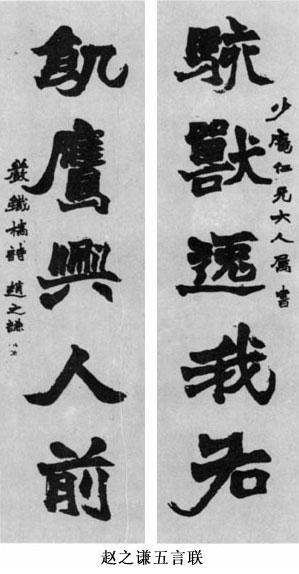 少仁兄大人属書
駭獸逸我右
飢鷹興人前
嚴鐵橋詩 趙之謙
赵之谦五言联